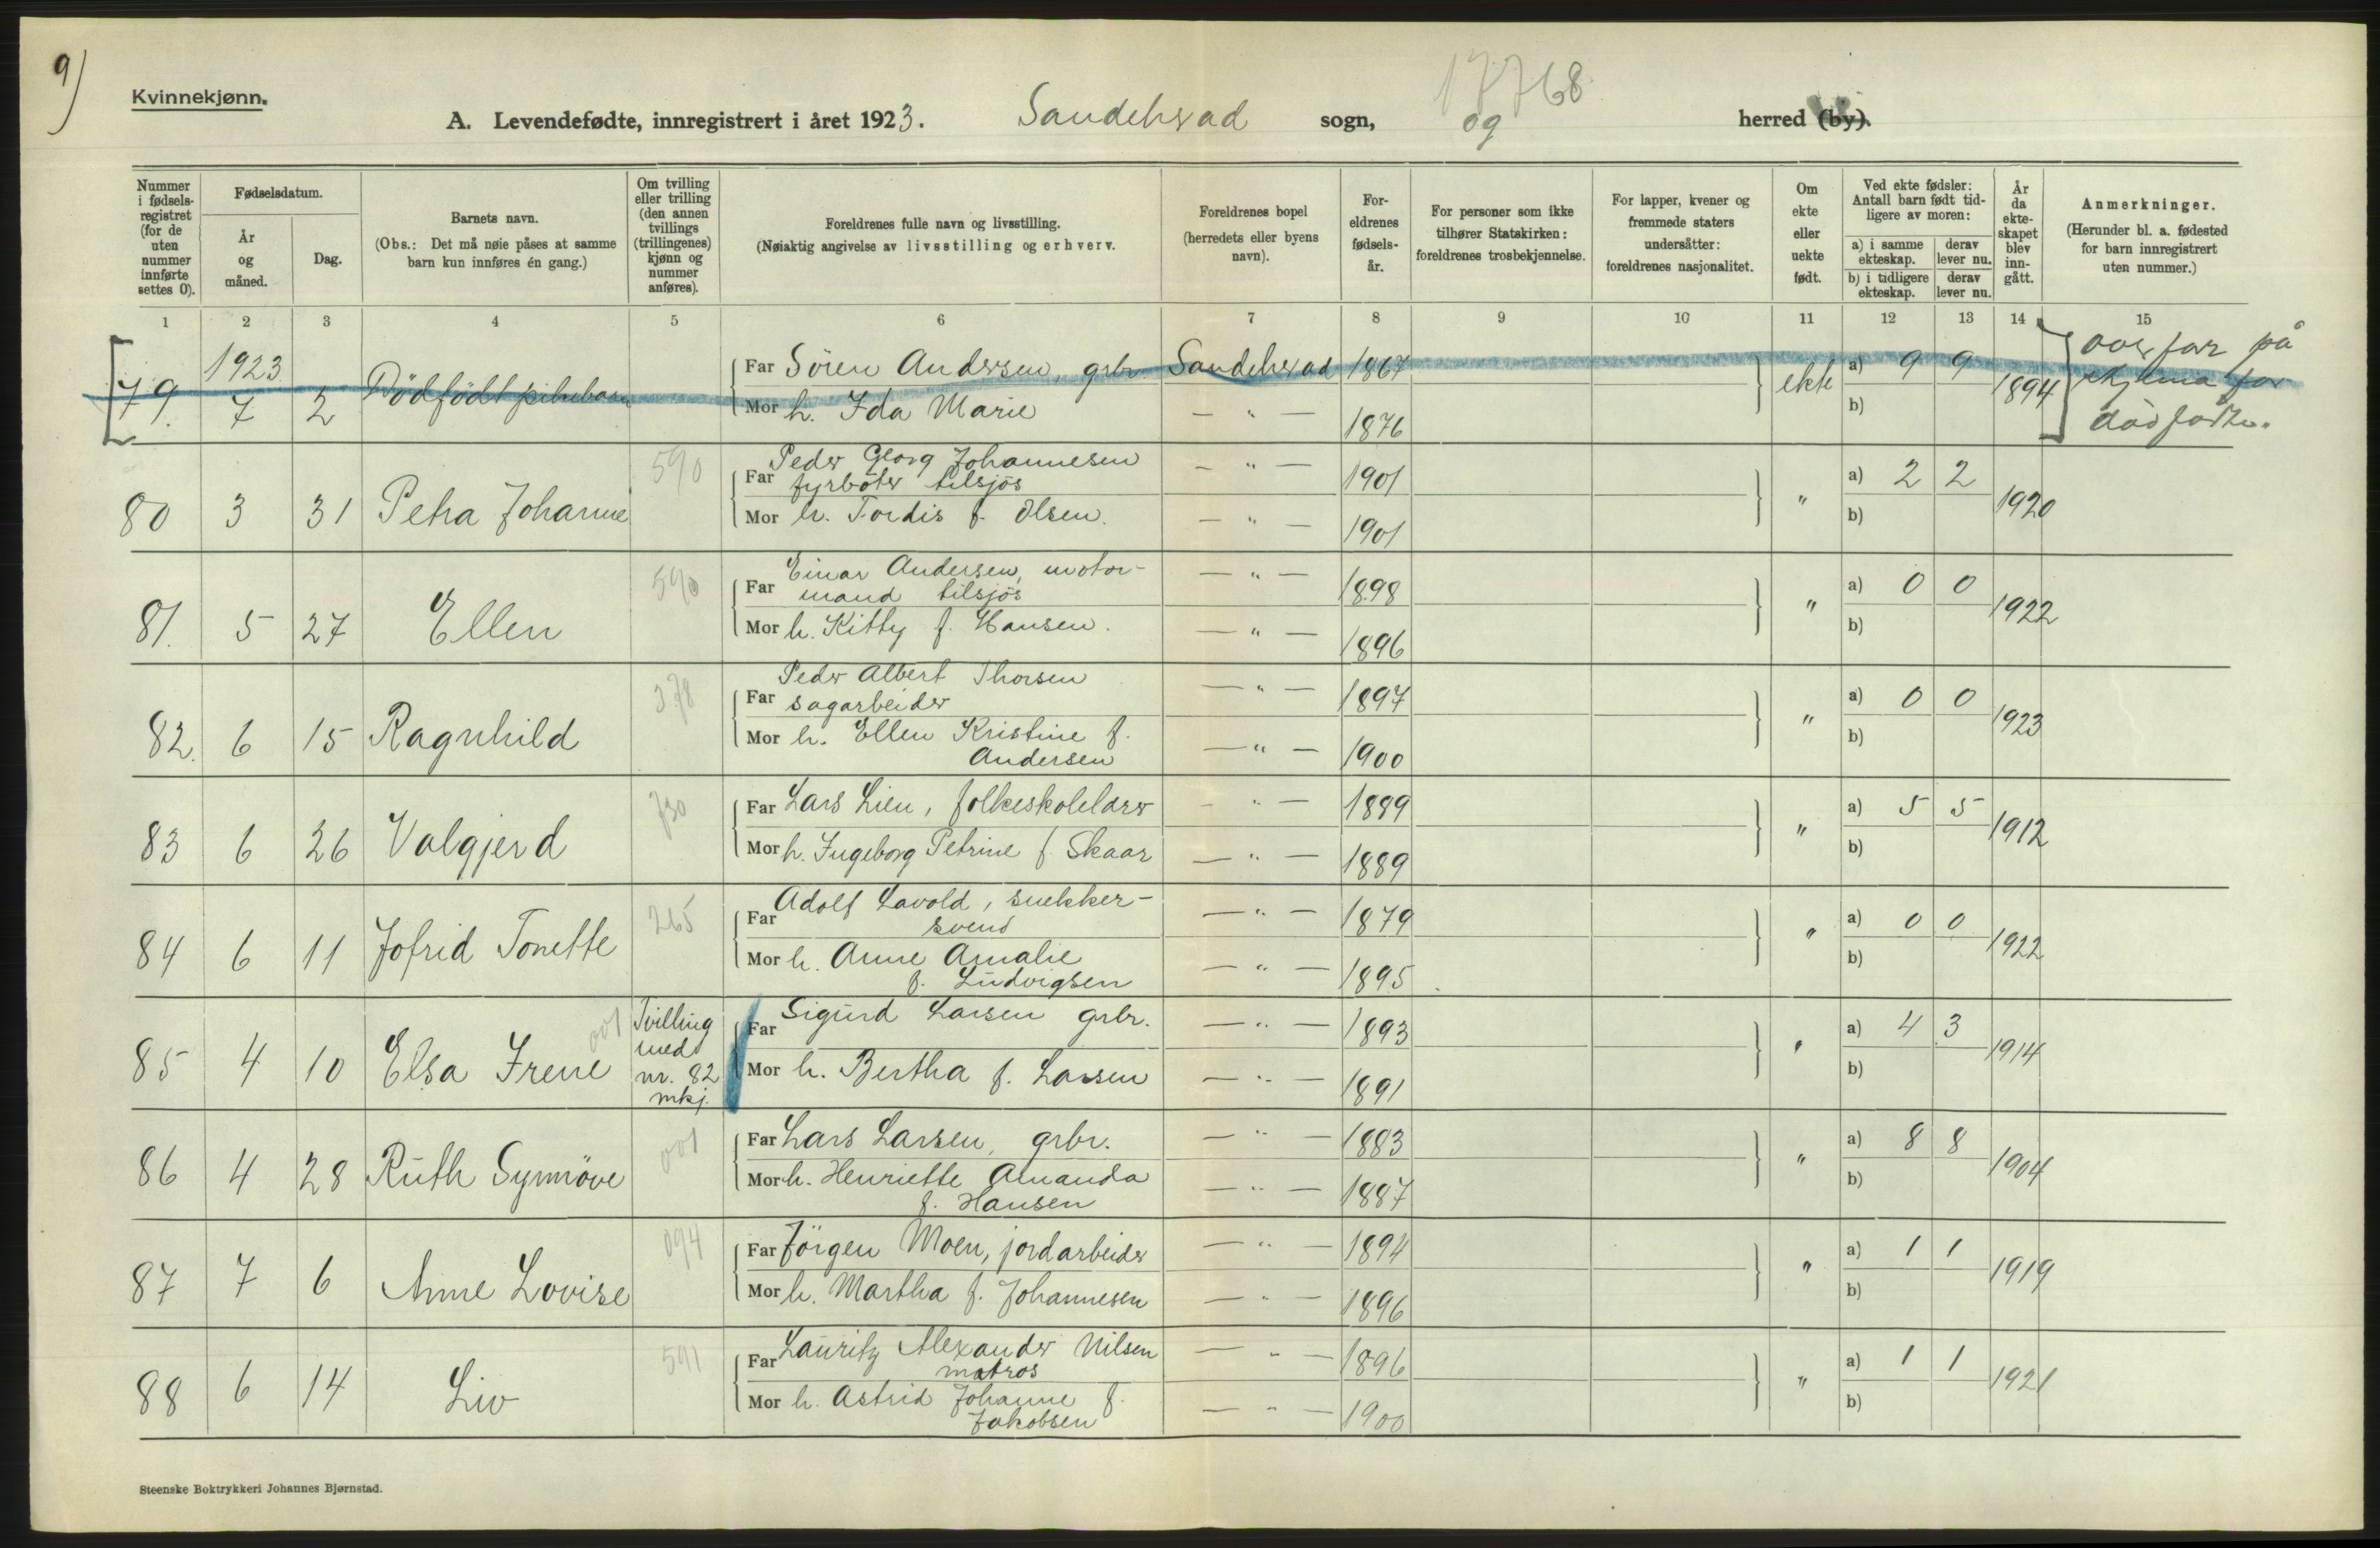 9)
Kvinnekjønn.
17768
A. Levendefødte, innregistrert i året 1923. Sandeherad sogn, og herred (by).
Nummer i fødsels-registret (for de uten nummer innførte settes 0).
Fødselsdatum.
År og måned.
Dag.
Barnets navn.
(Obs.: Det må nøie påses at samme barn kun innføres én gang.)
Om tvilling eller trilling (den annen tvillings (trillingenes) kjønn og nummer anføres).
Foreldrenes fulle navn og livsstilling.
(Nøiaktig angivelse av livsstilling og erhverv.
Foreldrenes bopel (herredets eller byens navn).
For-eldrenes fødsels-år.
For personer som ikke tilhører Statskirken: foreldrenes trosbekjennelse.
For lapper, kvener og fremmede staters undersåtter: foreldrenes nasjonalitet.
Om ekte eller uekte født.
Ved ekte fødsler: Antall barn født tid-ligere av moren:
a) i samme ekteskap.
derav lever nu.
b) i tidligere ekteskap.
derav lever nu.
År da ekte-skapet blev inn-gått.
Anmerkninger.
(Herunder bl. a. fødested for barn innregistrert uten nummer.)
1 2 3 4 5 6 7 8 9 10 11 12 13 14 15
79. 1923 7 2 Dödfödt pikebarn Far Sören Andersen, grbr. Sandeherad 1867 ekte a) 9 9 1894 overför på
Mor h. Ida Marie — " — 1876 b) skjema for
dødfødte.
80 3 31 Petra Johanne 590 Far Peder Georg Johannesen — " — 1901 " a) 2 2 1920
fyrböter tilsjös
Mor h. Tordis f. Olsen. — " — 1901 b)
81. 5 27 Ellen 590 Far Einar Andersen, motor- — " — 1898 " a) 0 0 1922
mand tilsjös
Mor h. Kitty f. Hansen. — " — 1896 b)
82. 6 15 Ragnhild 378 Far Peder Albert Thorsen — " — 1897 " a) 0 0 1923
sagarbeider
Mor h. Ellen Kristine f. — " — 1900 b)
Andersen
83 6 26 Valgjerd 730 Far Lars Lien, folkeskolelærer — " — 1889 " a) 5 5 1912
Mor h. Ingeborg Petrine f. Skaar — " — 1889 b)
84 6 11 Jofrid Tonette 265 Far Adolf Lavold, snekker- — " — 1879 " a) 0 0 1922
svend
Mor h. Anne Amalie — " — 1895 b)
f. Ludvigsen
85 4 10 Elsa Irene 001 Tvilling med nr. 82 mkj. Far Sigurd Larsen grbr. — " — 1893 " a) 4 3 1914
Mor h. Bertha f. Larsen — " — 1891 b)
86 4 28 Ruth Synnöve 001 Far Lars Larsen, grbr. — " — 1883 " a) 8 8 1904
Mor h. Henriette Amanda — " — 1887 b)
f. Hansen
87 7 6 Anne Lovise 094 Far Jörgen Moen, jordarbeider — " — 1894 " a) 1 1 1919
Mor h. Martha f. Johannesen — " — 1896 b)
88 6 14 Liv 591 Far Lauritz Alexander Nilsen — " — 1896 " a) 1 1 1921
matros
Mor h. Astrid Johanne f. — " — 1900 b)
Jakobsen
Steenske Boktrykkeri Johannes Bjørnstad.